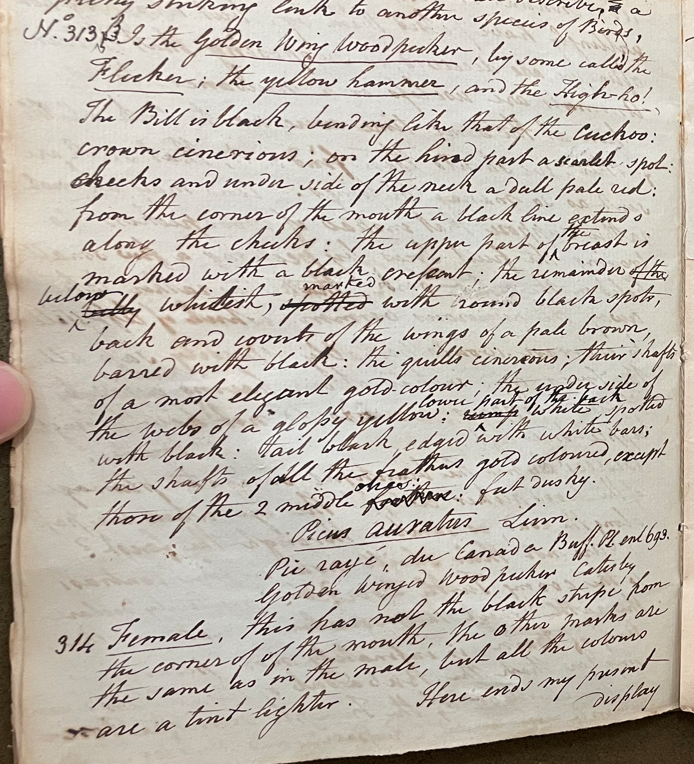 pretty striking link to another species of Birds,
No. 313 Is the Golden Wing Woodpecker, by some called the
Flicker; the yellow hammer, and the High-ho!
The Bill is black, bending like that of the Cuckoo:
crown cinerious; on the hind part a scarlet spot:
cheeks and under side of the neck a dull pale red:
from the corner of the mouth a black line extends
along the cheeks: the upper part of the breast is
marked with a black cressent: the remainder of the
below belly whitish, spotted marked with round black spots,
back and coverts of the wings of a pale brown,
barred with black: the quills cinerious; their shafts
of a most elegant gold-colour: the under side of
the webs of a glossy yellow: rump lower part of the back white spotted
with black: tail black, edged with white bars;
the shafts of all the feathers gold coloured, except
those of the 2 middle ones: feet dusky.
Picus auratus Linn.
Pic rayé, du Canada Buff. Pl. enl 693.
Golden winged Woodpecker Catisby
314 Female, this has not the black stripe from
the corner of of the mouth. The other marks are
the same as in the male, but all the colours
are a tint lighter. Here ends my present
display